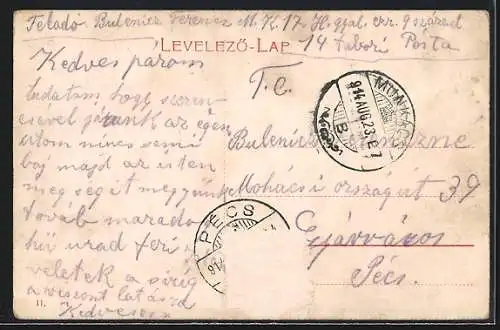 Felado Bulenicz Ferencz M. K. 17. H. gyal. ezr. 9 század
14 Tábori Pósta
LEVELEZŐ-LAP
Kedves párom
tudatom hogy szeren-
csével jártunk az egész
utom nincs semi
baj majd az isten
meg segit megyünk
továb marado
hü urad feri
veletek a sirig
a viszont látásra
Kedvesem
T. C.
Bulenicz
Mohácsi országút 39
Gyárváros
Pécs.
MUNKÁCS
914 AUG. 23. E 7
B
PÉCS
914
11.